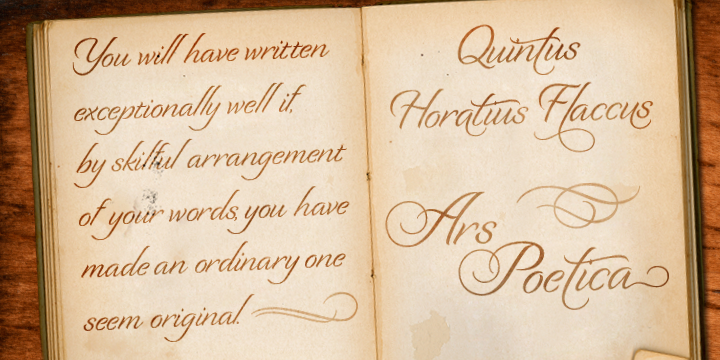 You will have written
exceptionally well if,
by skilful arrangement
of your words, you have
made an ordinary one
seem original.
Quintus
Horatius Flaccus
Ars
Poetica